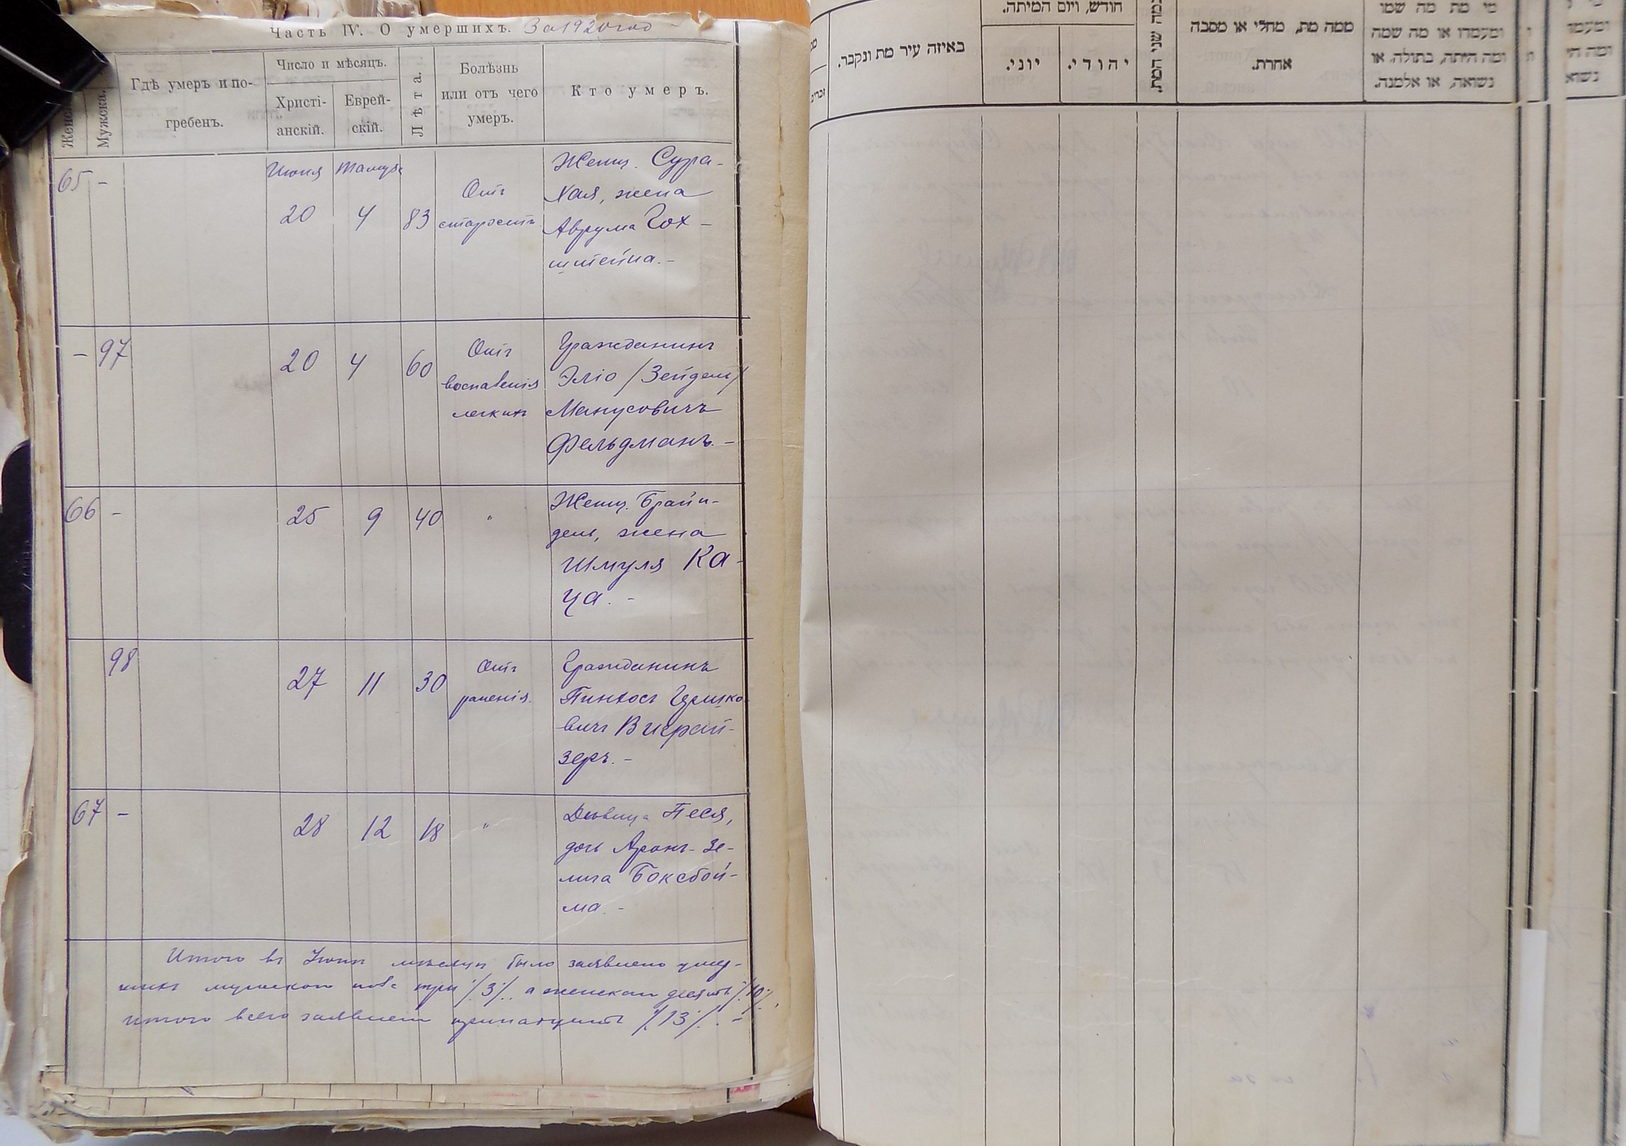 Часть IV. О умершихъ. За 1920 годъ
Женск.
Мужска.
Гдѣ умеръ и по-
гребенъ.
Число и мѣсяцъ.
Христі-
анскій.
Еврей-
скій.
Лѣта.
Болѣзнь
или отъ чего
умеръ.
Кто умеръ.
65 -
Июня Тамуза
20 4 83
Отъ
старости
Женщ. Сура-
Хая, жена
Аврума Гох-
штейна. -
- 97
20 4 60
Отъ
воспаленія
легкихъ
Гражданинъ
Эліо /Зейдель/
Манусовичъ
Фельдманъ. -
66 -
25 9 40 "
Женщ. Брайн-
дель, жена
Шмуля Ка-
ца. -
98
27 11 30
Отъ
раненія.
Гражданинъ
Пинхосъ Гершко-
вичъ
зеръ. -
67 -
28 12 18 "
Дѣвица Песя,
дочь Аронъ-Зе-
лига Боксбой-
ма. -
Итого въ Іюнѣ мѣсяцѣ было заявлено умер-
шихъ мужского пола три /3/, а женскаго десять /10/,
итого всего заявленій тринадцать /13/. -
באיזה עיר מת ונקבר.
חודש, ויום המיתה.
יוני.
יהודי.
כמה שני המת.
ממה מת, מחלי או מסבה
אחרת.
מי מת מה שמו
ומעמדו או מה שמה
ומה היתה, בתולה, או
נשואה, או אלמנה.